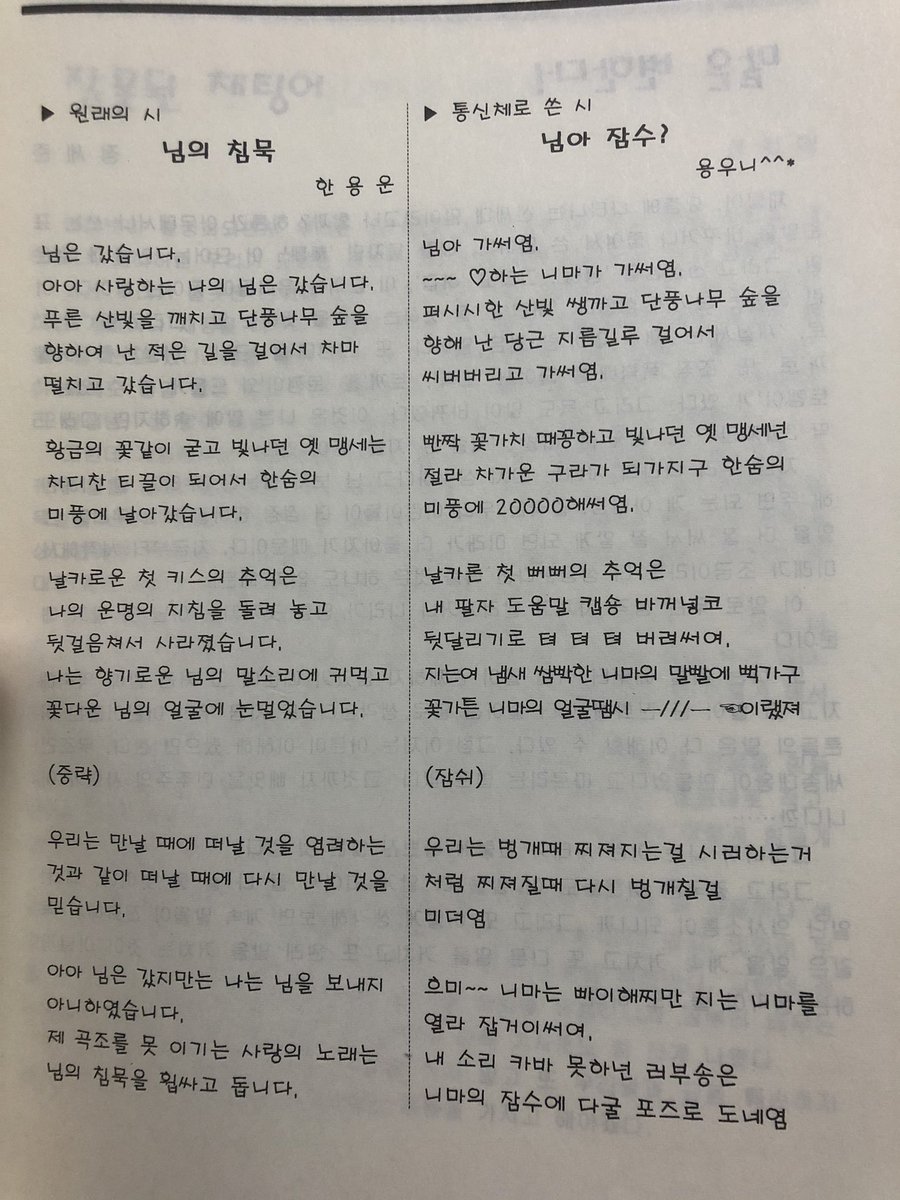 ▶ 원래의 시
님의 침묵
한 용 운
님은 갔습니다.
아아 사랑하는 나의 님은 갔습니다.
푸른 산빛을 깨치고 단풍나무 숲을
향하여 난 적은 길을 걸어서 차마
떨치고 갔습니다.
황금의 꽃같이 굳고 빛나던 옛 맹세는
차디찬 티끌이 되어서 한숨의
미풍에 날아갔습니다.
날카로운 첫 키스의 추억은
나의 운명의 지침을 돌려 놓고
뒷걸음쳐서 사라졌습니다.
나는 향기로운 님의 말소리에 귀먹고
꽃다운 님의 얼굴에 눈멀었습니다.
(중략)
우리는 만날 때에 떠날 것을 염려하는
것과 같이 떠날 때에 다시 만날 것을
믿습니다.
아아 님은 갔지만는 나는 님을 보내지
아니하였습니다.
제 곡조를 못 이기는 사랑의 노래는
님의 침묵을 휩싸고 돕니다.
▶ 통신체로 쓴 시
님아 잠수?
용우니^^*
님아 가써염.
~~~ ♡하는 니마가 가써염.
퍼시시한 산빛 쌩까고 단풍나무 숲을
향해 난 당근 지름길루 걸어서
씨버버리고 가써염.
빤짝 꽃가치 때꽁하고 빛나던 옛 맹세넌
절라 차가운 구라가 되가지구 한숨의
미풍에 20000해써염.
날카론 첫 뻐뻐의 추억은
내 팔자 도움말 캡숑 바꺼넣코
뒷달리기로 텨 텨 텨 버려써여.
지는여 냄새 쌈빡한 니마의 말빨에 뻑가구
꽃가튼 니마의 얼굴땜시 ―///― ☜이랬져
(잠쉬)
우리는 벙개때 찌져지는걸 시러하는거
처럼 찌져질때 다시 벙개칠걸
미더염
흐미~~ 니마는 빠이해찌만 지는 니마를
열라 잡거이써여.
내 소리 카바 못하넌 러부송은
니마의 잠수에 다굴 포즈로 도네염